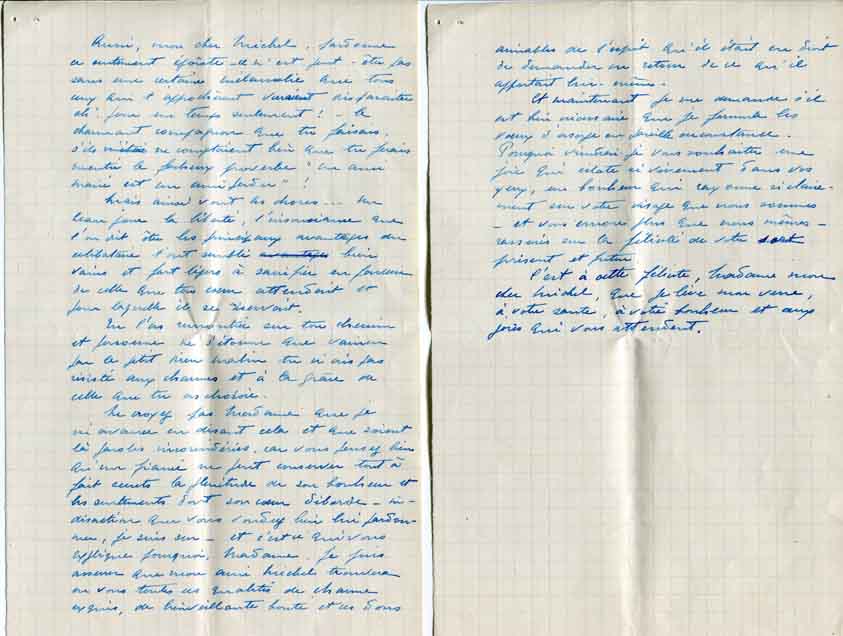 Aussi, mon cher Michel, pardonne
ce sentiment égoïste - ce n'est peut-être pas
sans une certaine mélancolie que tous
ceux qui t'approchaient verraient disparaître
oh! pour un temps seulement! - le
charmant compagnon que tu faisais,
s'ils ne comptaient bien que tu feras
mentir le fâcheux proverbe "un ami
marié est un ami perdu"!
Mais ainsi vont les choses... un
beau jour la liberté, l'insouciance que
l'on dit être les principaux avantages du
célibataire t'ont semblé avantages bien
vains et fort légers à sacrifier en faveur
de celle que ton cœur attendait et
pour laquelle il se réservait.
Tu l'as rencontrée sur ton chemin
et personne ne s'étonne que vaincu
par le petit dieu malin tu n'aies pas
résisté aux charmes et à la grâce de
celle que tu as choisie.
Ne croyez pas Madame que je
m'avance en disant cela et que soient
là paroles inconsidérées, car vous pensez bien
qu'un fiancé ne peut conserver tout à
fait secrets la plénitude de son bonheur et
les sentiments dont son cœur déborde - in-
discrétion que vous voudrez bien lui pardon-
ner, je suis sûr - et c'est ce qui vous
explique pourquoi, Madame, je puis
assurer que mon ami Michel trouvera
en vous toutes ces qualités de charme
exquis, de bienveillante bonté et ces dons
aimables de l'esprit qu'il était en droit
de demander en retour de ce qu'il
apportait lui-même.
Et maintenant je me demande s'il
est bien nécessaire que je formule les
vœux d'usage en pareille circonstance.
Pourquoi viendrai-je vous souhaiter une
joie qui éclate si vivement dans vos
yeux, un bonheur qui rayonne si claire-
ment sur votre visage que nous sommes
- et vous encore plus que nous mêmes -
rassurés sur la félicité de votre sort
présent et futur.
C'est à cette félicité, Madame, mon
cher Michel, que je lève mon verre,
à votre santé, à votre bonheur et aux
joies qui vous attendent.